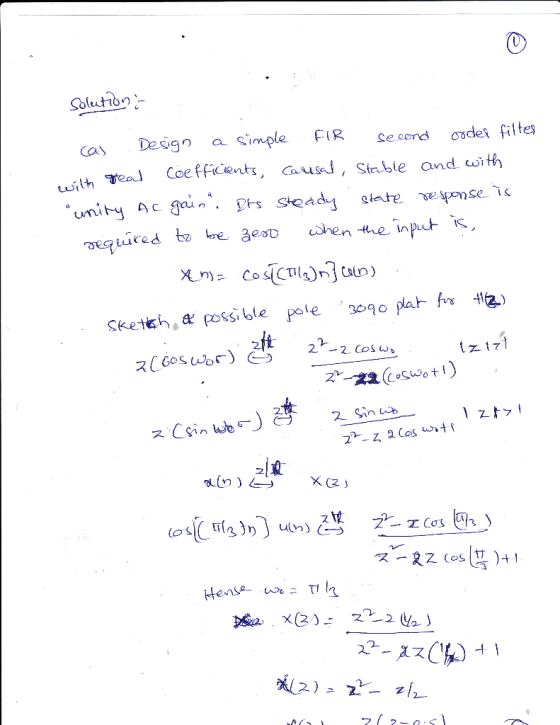 1
Solution:-
(a) Design a simple FIR second order filter
with real Coefficients, Causal, Stable and with
"unity AC gain". Its steady state response is
required to be zero when the input is,
x(n) = cos[(π/3)n] u(n)
Sketch a possible pole 3090 plat for H(z)
z(cos ω₀σ) ↔ z² - z cos ω₀ / z² - 2z (cos ω₀ + 1) |z|>1
z(sin ω₀σ) ↔ z sin ω₀ / z² - z 2 cos ω₀ + 1 |z|>1
x(n) ↔ X(z)
cos[(π/3)n] u(n) ↔ z² - z cos(π/3) / z² - 2z cos(π/3) + 1
Hense ω₀ = π/3
X(z) = z² - z(1/2) / z² - 2z(1/2) + 1
X(z) = z² - z/2
z(z-0.5)